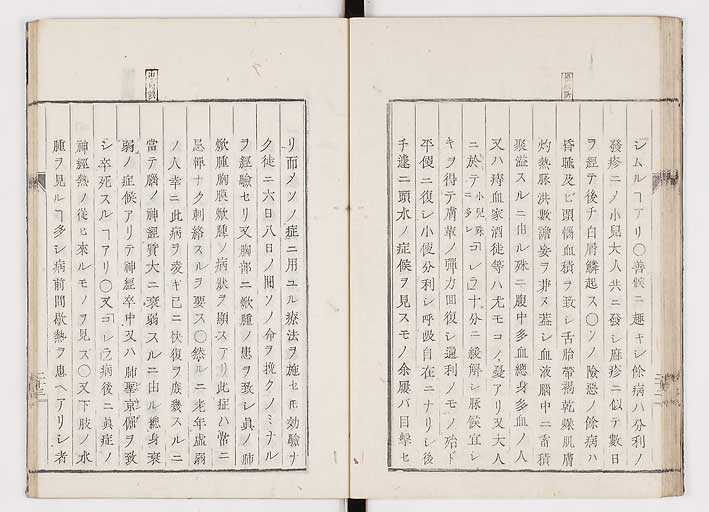 シムルヿアリ〇善候ニ趣キシ餘病ハ分利ノ
發疹ニノ小兒大人共ニ發シ麻疹ニ似テ數日
ヲ經テ後チ白屑鱗起ス〇ソノ險惡ノ餘病ハ
昏睡及ビ頭腦血積ヲ致シ舌胎帶褐乾燥肌膚
灼熱脉洪數譫妄ヲ兼ヌ蓋シ血液腦中ニ畜積
聚溢スルニ由ル殊ニ腹中多血總身多血ノ人
又ハ痔血家酒徒等ハ尤モコノ憂アリ又大人
ニ於テ小兒殊ニ多シヿレ十分ニ緩解シ脉候宜シ
キヲ得テ膚革ノ彈力回復シ過利ノモノ殆ド
平便ニ復シ小便分利シ呼吸自在ニナリシ後
チ遽ニ頭水ノ症候ヲ見スモノ余屢バ目擊セ
リ而メソノ症ニ用ユル療法ヲ施セ𪜈効驗ナ
ク徒ニ六日八日ノ間ソノ命ヲ挽クノミナル
ヲ經驗セリ又胸部ニ焮腫ノ患ヲ致シ眞ノ肺
焮腫胸膜焮腫ノ病狀ヲ顯スアリ此症ハ常ニ
忌憚ナク刺絡スルヲ要ス〇然ルニ老年虛弱
ノ人幸ニ此病ヲ凌ギ已ニ快復ヲ庶幾スルニ
當テ腦ノ神經質大ニ衰弱スルニ由ル總身衰
弱ノ症候アリテ神經卒中又ハ肺聖京偏ヲ致
シ卒死スルヿアリ〇又ヿレラ病後ニ眞症ノ
神經熱ノ從ヒ來ルモノヲ見ズ〇又下肢ノ水
腫ヲ見ルヿ多シ病前間歇熱ヲ患ヘアリシ者